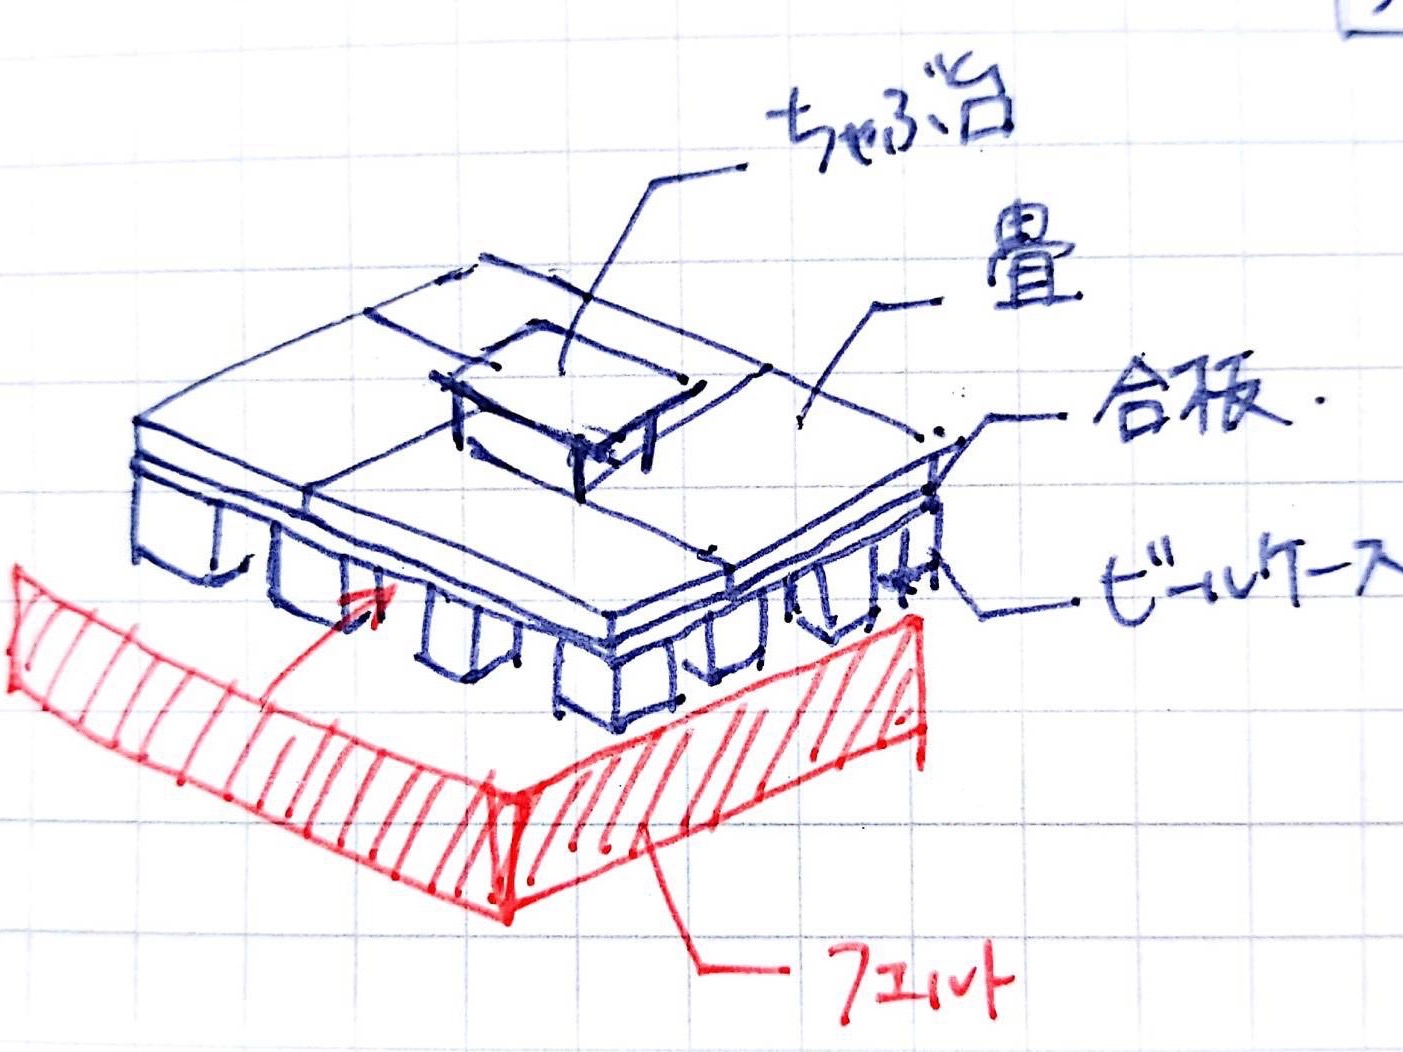 ちゃぶ台
畳
合板.
ビールケース
フェルト